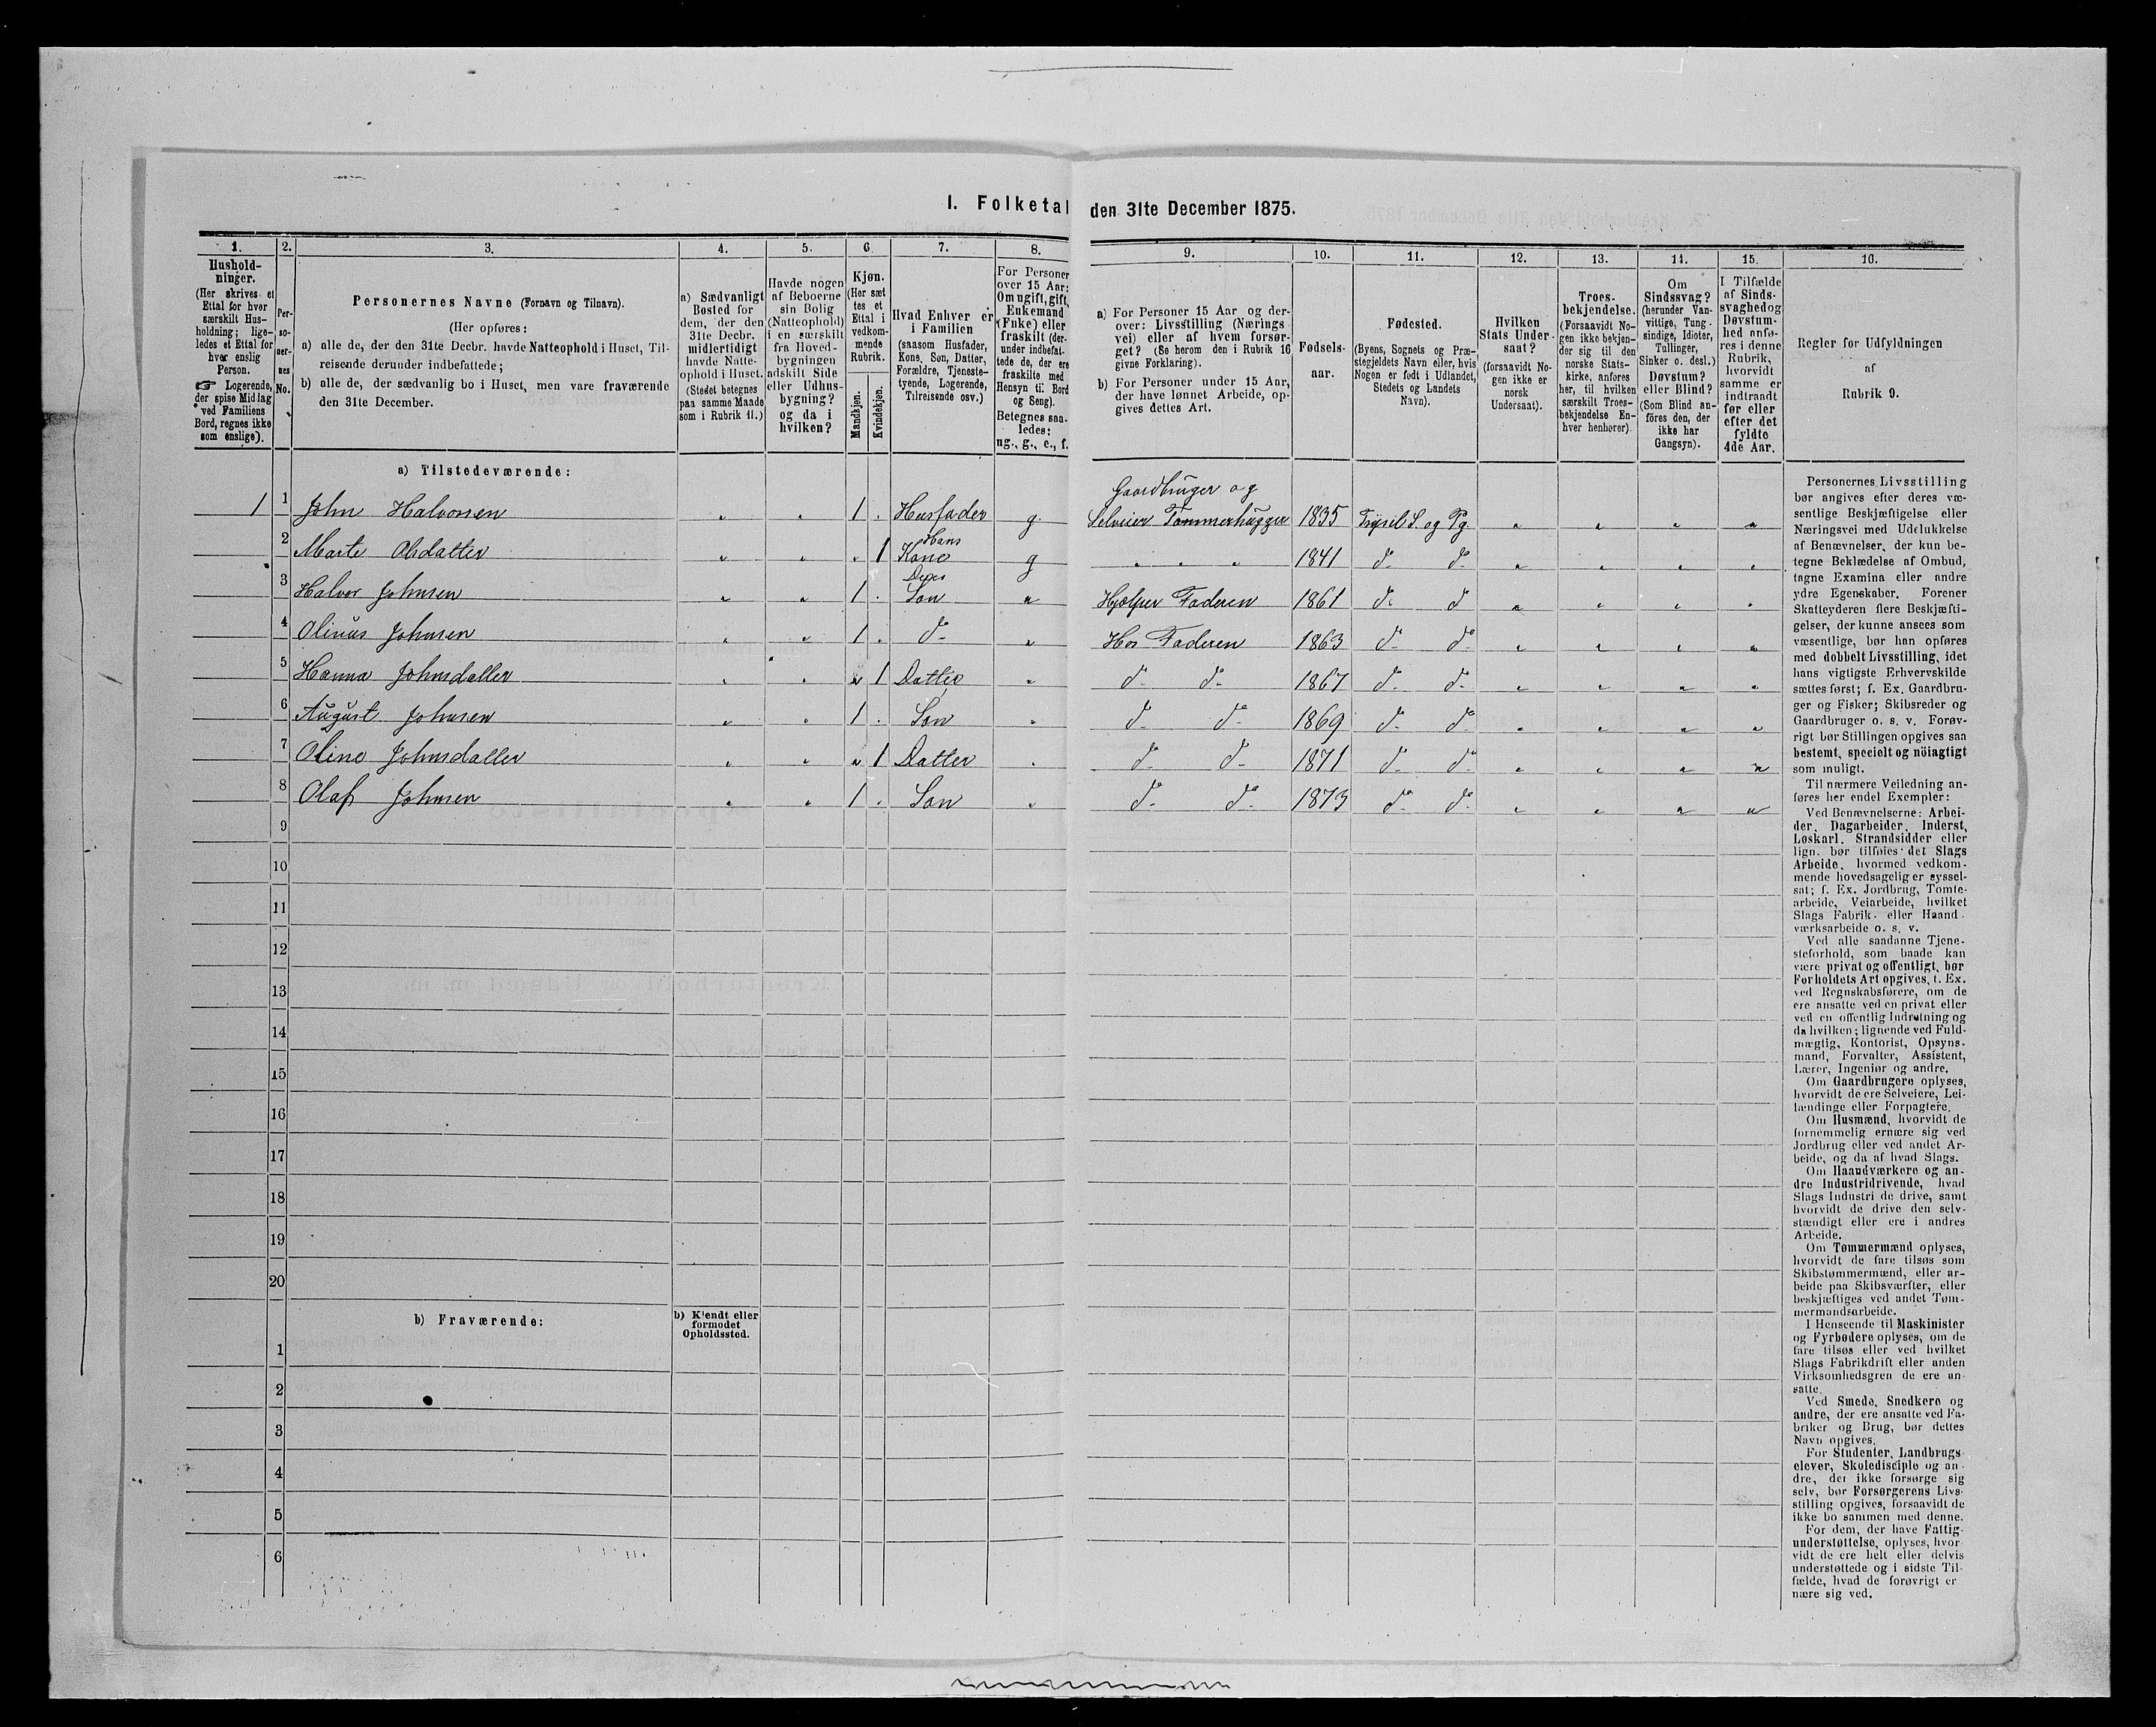 I. Folketal den 31te December 1875.
1. 2. 3. 4. 5. 6. 7. 8. 9. 10. 11. 12. 13. 14. 15. 16.
Hushold-
ninger.
(Her skrives et
Ettal for hver
særskilt Hus-
holdning; lige-
ledes et Ettal for
hver enslig
Person.
☞ Logerende,
der spise Middag
ved Familiens
Bord, regnes ikke
som enslige).
Per-
so-
ner-
nes
No.
Personernes Navne (Fornavn og Tilnavn).
(Her opføres:
a) alle de, der den 31te Decbr. havde Natteophold i Huset, Til-
reisende derunder indbefattede;
b) alle de, der sædvanlig bo i Huset, men vare fraværende
den 31te December.
a) Sædvanligt
Bosted for
dem, der den
31te Decbr.
midlertidigt
havde Natte-
ophold i Huset.
(Stedet betegnes
paa samme Maade
som i Rubrik 11.)
Havde nogen
af Beboerne
sin Bolig
(Natteophold)
i en særskilt
fra Hoved-
bygningen
adskilt Side
eller Udhus-
bygning?
og da i
hvilken?
Kjøn.
(Her sæt
tes et
Ettal i
vedkom-
mende
Rubrik.
Mandkjøn.
Kvindekjøn.
Hvad Enhver er
i Familien
(saasom Husfader,
Kone, Søn, Datter,
Forældre, Tjeneste-
tyende, Logerende,
Tilreisende osv.)
For Personer
over 15 Aar:
Om ugift, gift,
Enkemand
(Enke) eller
fraskilt (der-
under indbefat-
tede de, der ere
fraskilte med
Hensyn til Bord
og Seng).
Betegnes saa-
ledes:
ug., g., e., f.
a) For Personer 15 Aar og der-
over: Livsstilling (Nærings
vei) eller af hvem forsør-
get? (Se herom den i Rubrik 16
givne Forklaring).
b) For Personer under 15 Aar,
der have lønnet Arbeide, op-
gives dettes Art.
Fødsels-
aar.
Fødested.
(Byens, Sognets og Præ-
stegjeldets Navn eller, hvis
Nogen er født i Udlandet,
Stedets og Landets
Navn).
Hvilken
Stats Under-
saat?
(forsaavidt No-
gen ikke er
norsk
Undersaat).
Troes-
bekjendelse.
(Forsaavidt No-
gen ikke bekjen-
der sig til den
norske Stats-
kirke, anføres
her, til hvilken
særskilt Troes-
bekjendelse En-
hver henhører).
Om
Sindssvag?
(herunder Van-
vittige, Tung-
sindige, Idioter,
Tullinger,
Sinker o. desl.)
Døvstum?
eller Blind?
(Som Blind an-
føres den, der
ikke har
Gangsyn).
I Tilfælde
af Sinds-
svaghed og
Døvstum-
hed anfø-
res i denne
Rubrik,
hvorvidt
samme er
indtraadt
før eller
efter det
fyldte
4de Aar.
Regler for Udfyldningen
af
Rubrik 9.
a) Tilstedeværende:
Gaardbruger og
1 1 John Halvorsen " " 1 . Husfader g. Selveier Tømmerhugger 1835 Trysil S. og Pg. " " " "
Hans
2 Marte Olsdatter " " " 1 Kone g " " " 1841 do do " " " "
Deres
3 Halvor Johnsen " " 1 . Søn " Hjælper Faderen 1861 do do " " " "
4 Olinus Johnsen " " 1 . do " Hos Faderen 1863 do do " " " "
5 Hanna Johnsdatter " " " 1 Datter " do do 1867 do do " " " "
6 August Johnsen " " 1 . Søn " do do 1869 do do " " " "
7 Oline Johnsdatter " " " 1 Datter " do do 1871 do do " " " "
8 Olaf Johnsen " " 1 . Søn " do do 1873 do do " " " "
9
10
11
12
13
14
15
16
17
18
19
20
b) Fraværende:
b) Kjendt eller
formodet
Opholdssted.
1
2
3
4
5
6
Personernes Livsstilling
bør angives efter deres væ-
sentlige Beskjæftigelse eller
Næringsvei med Udelukkelse
af Benævnelser, der kun be-
tegne Beklædelse af Ombud,
tagne Examina eller andre
ydre Egenskaber. Forener
Skatteyderen flere Beskjæfti-
gelser, der kunne ansees som
væsentlige, bør han opføres
med dobbelt Livsstilling, idet
hans vigtigste Erhvervskilde
sættes først; f. Ex. Gaardbru-
ger og Fisker; Skibsreder og
Gaardbruger o. s. v. Forøv-
rigt bør Stillingen opgives saa
bestemt, specielt og nöiagtigt
som muligt.
Til nærmere Veiledning an-
føres her endel Exempler:
Ved Benævnelserne: Arbei-
der, Dagarbeider, Inderst,
Løskarl, Strandsidder eller
lign. bør tilføies det Slags
Arbeide, hvormed vedkom-
mende hovedsagelig er syssel-
sat; f. Ex. Jordbrug, Tomte-
arbeide, Veiarbeide, hvilket
Slags Fabrik- eller Haand-
værksarbeide o. s. v.
Ved alle saadanne Tjene-
steforhold, som baade kan
være privat og offentligt, bør
Forholdets Art opgives, f. Ex.
ved Regnskabsførere, om de
ere ansatte ved en privat eller
ved en offentlig Indretning og
da hvilken; lignende ved Fuld-
mægtig, Kontorist, Opsyns-
mand, Forvalter, Assistent,
Lærer, Ingeniør og andre.
Om Gaardbrugere oplyses,
hvorvidt de ere Selveiere, Lei-
lændinge eller Forpagtere.
Om Husmænd, hvorvidt de
fornemmelig ernære sig ved
Jordbrug eller ved andet Ar-
beide, og da af hvad Slags.
Om Haandværkere og an-
dre Industridrivende, hvad
Slags Industri de drive, samt
hvorvidt de drive den selv-
stændigt eller ere i andres
Arbeide.
Om Tømmermænd oplyses,
hvorvidt de fare tilsøs som
Skibstømmermænd, eller ar-
beide paa Skibsværfter, eller
beskjæftiges ved andet Tøm-
mermandsarbeide.
I Henseende til Maskinister
og Fyrbødere oplyses, om de
fare tilsøs eller ved hvilket
Slags Fabrikdrift eller anden
Virksomhedsgren de ere an-
satte.
Ved Smede, Snedkere og
andre, der ere ansatte ved Fa-
briker og Brug, bør dettes
Navn opgives.
For Studenter, Landbrugs-
elever, Skoledisciple og an-
dre, der ikke forsørge sig
selv, bør Forsørgerens Livs-
stilling opgives, forsaavidt de
ikke bo sammen med denne.
For dem, der have Fattig-
understøttelse, oplyses, hvor-
vidt de ere helt eller delvis
understøttede og i sidste Til-
fælde, hvad de forøvrigt er-
nære sig ved.